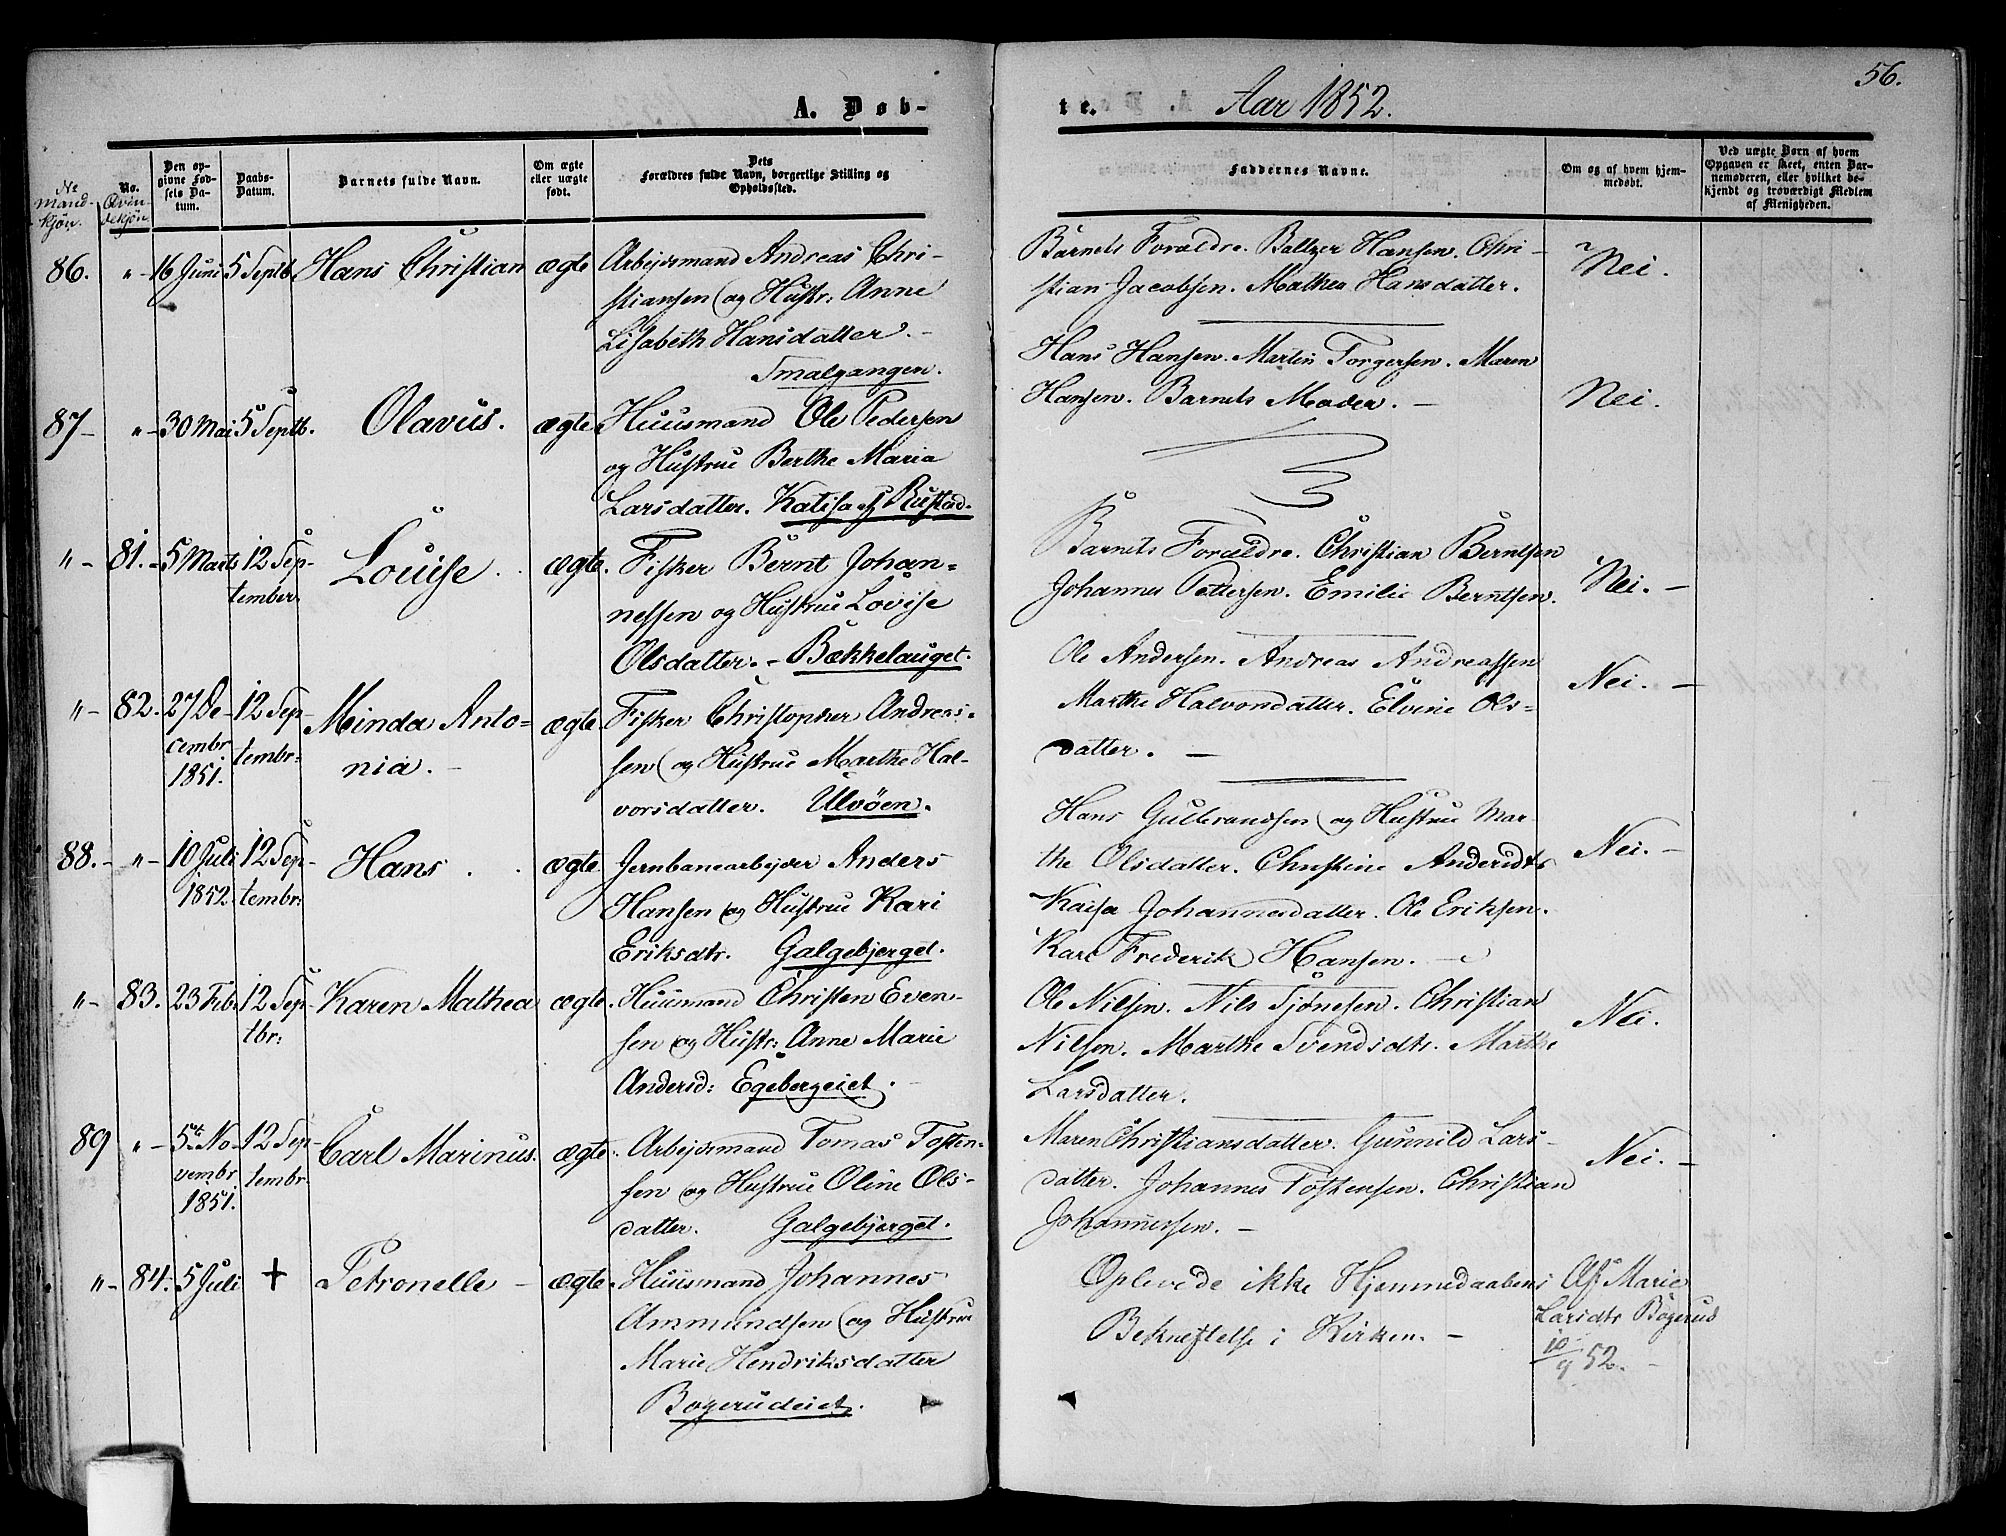 A. Døb-
te. Aar 1852.
56.
No mand-kjøn.
No. Qvin-dekjøn.
Den op-
givne Fød-
sels Da-
tum.
Daabs-
Datum.
Barnets fulde Navn.
Om ægte
eller uægte
født.
Dets
Forældres fulde Navn, borgerlige Stilling og
Opholdssted.
Faddernes Navne.
Om og af hvem hjem-
medøbt.
Ved uægte Børn af hvem
Opgaven er skeet, enten Bar-
nemoderen, eller hvilket be-
kjendt og troværdigt Medlem
af Menigheden.
86. " 16 Juni 5 Septb. Hans Christian ægte Arbejdsmand Andreas Chri-
stiansen og Hustr: Anne
Lisabeth Hansdatter. -
Smalgangen.
Barnets Forældre. Baltzer Hansen. Chri-
stian Jacobsen. Mathea Hansdatter.
Nei.
87 " 30 Mai 5 Septb. Olavus. ægte Huusmand Ole Pedersen
og Hustrue Berthe Maria
Larsdatter. Katisa ej Rustad.
Hans Hansen. Martin Torgersen. Maren
Hansen. Barnets Moder. -
Nei.
" 81. 5 Marts 12 Sep-
tember. Louise. ægte. Fisker Bernt Johan-
nessen og Hustrue Lovise
Olsdatter. - Bækkelauget.
Barnets Forældre. Christian Berntsen
Johannes Pettersen. Emilie Berntsen.
Nei. -
" 82. 27 De-
cembr
1851. 12 Sep-
tembr: Minda Anto-
nia. - ægte. Fisker Christopher Andreas-
sen og Hustrue Marthe Hal-
vorsdatter. Ulvøen.
Ole Andersen. Andreas Andreassen
Marthe Halvorsdatter. Elvine Ols-
datter. -
Nei. -
88. " 10 Juli
1852. 12 Sep-
tembr: Hans. ægte Jernbanearbejder Anders
Hansen og Hustrue Kari
Eriksdtr. Galgebjerget.
Hans Gulbrandsen og Hustrue Mar-
the Olsdatter. Christine Andersdtr
Kaisa Johannesdatter. Ole Eriksen.
Karl Frederik Hansen. -
Nei. -
" 83. 23 Febr. 12 Sep-
tbr: Karen Mathea ægte. Huusmand Christen Even-
sen og Hustr: Anne Marie
Andersd: Egebergeiet. -
Ole Nilsen. Nils Tjønesen. Christian
Nilsen. Marthe Svendsdtr. Marthe
Larsdatter.
Nei.
89 " 5te No-
vembr
1851. 12 Sep-
tembr. Carl Marinus. ægte. Arbejdsmand Tomas Tosten-
sen og Hustrue Oline Ols-
datter. Galgebjerget.
Maren Christiansdatter. Gunnild Lars-
datter. Johannes Tostensen. Christian
Johannessen. -
Nei. -
" 84. 5 Juli + Petronelle - ægte. Huusmand Johannes
Ammundsen og Hustrue
Marie Hendriksdatter
Bogerudeiet.
Oplevede ikke Hjemmedaabens
Bekræftelse i Kirken. -
Af Marie
Larsdtr Bogerud
10/9 52. -